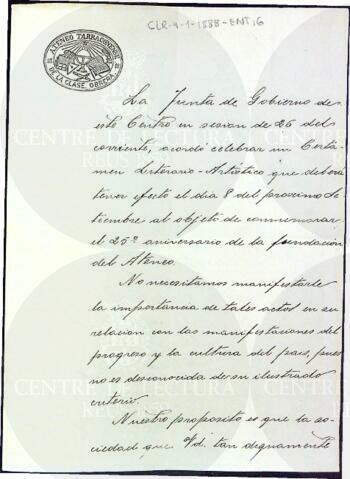 CLR-9-1-1888-ENT,6
ATENEO TARRACONENSE
DE LA CLASE OBRERA
La Junta de Gobierno de
este Centro en sesion de 26 del
corriente, acordó celebrar un Certa-
men Literario-Artístico que deberá
tener efecto el dia 8 del proximo Se-
tiembre al objeto de conmemorar
el 25º aniversario de la fundación
del Ateneo.
No necesitamos manifestarle
la importancia de tales actos en su
relacion con las manifestaciones del
progreso y la cultura del pais, pues
no es desconocida de su ilustrado
criterio.
Nuestro proposito es que la so-
ciedad que Vd. tan dignamente
CENTRE DE LECTURA
REUS 1859
CENTRE DE LECTURA
REUS 1859